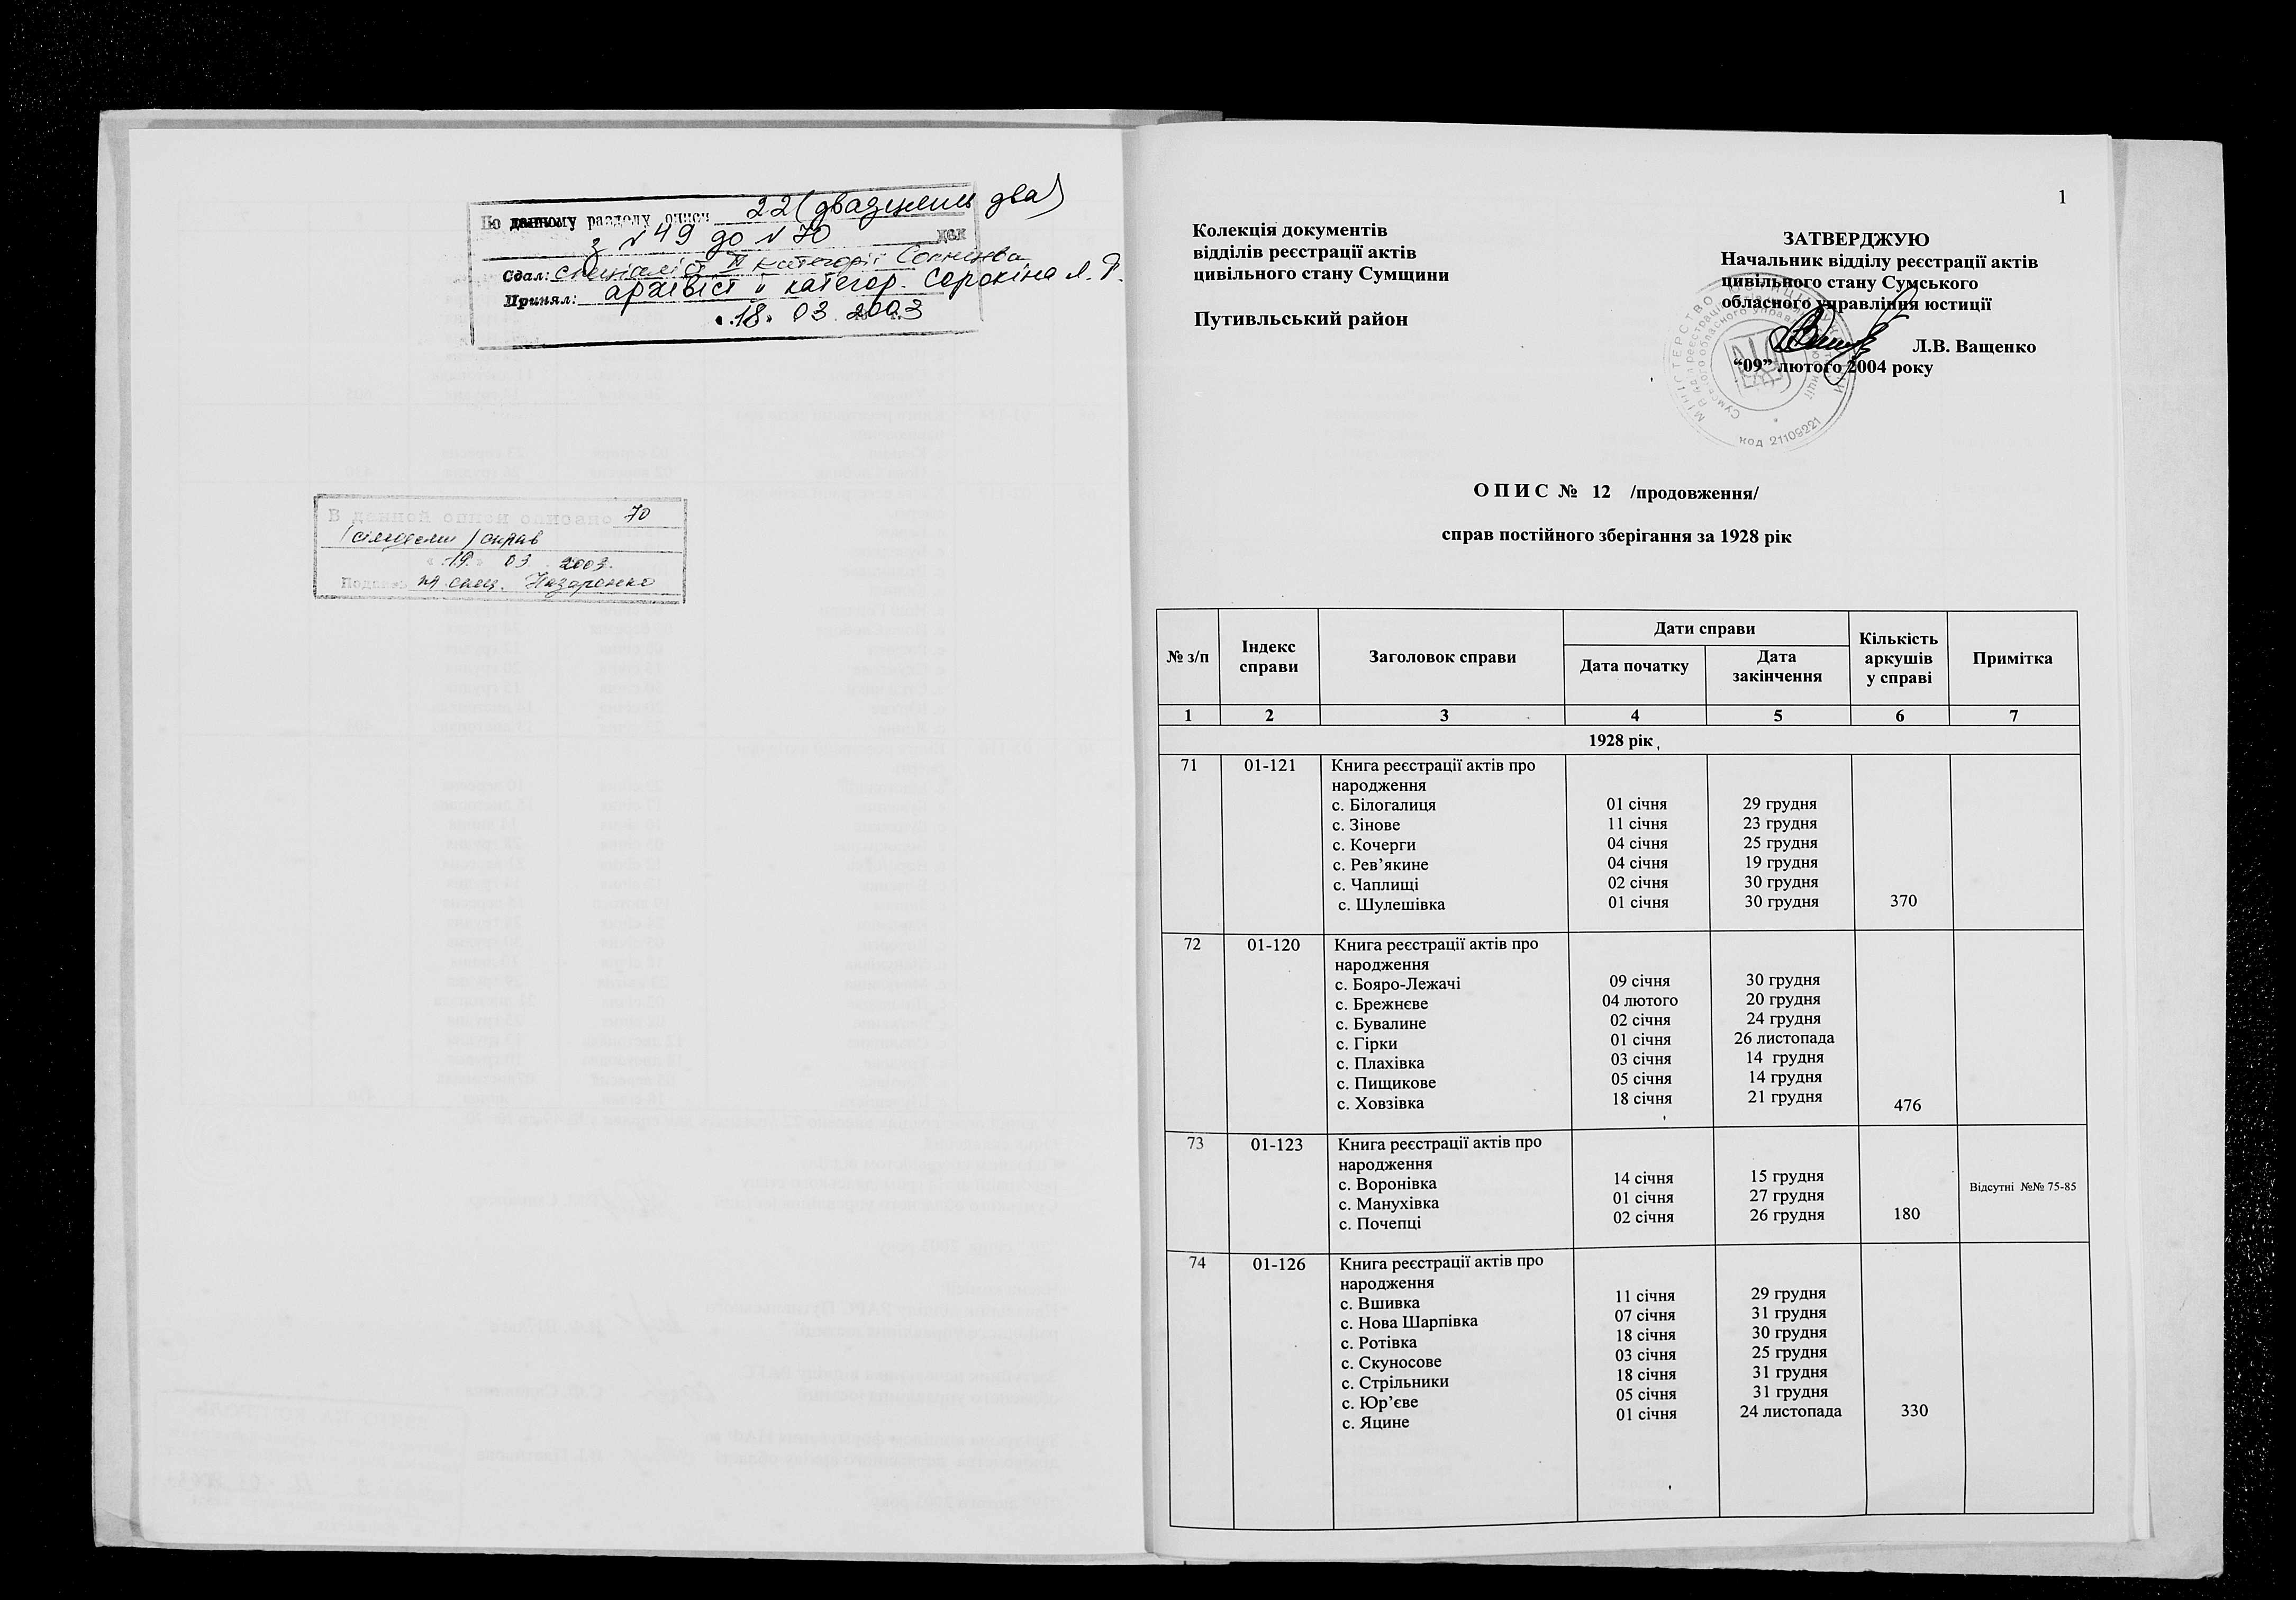 По данному разделу описи 22 (двадцять два)
з N 49 до N 70
Сдал: спеціаліст II категорії
Принял: архівіст II категор. Сорокіна Л. Г.
"18" 03 2003
В данной описи описано 70
/сімдесят/ справ
"19" 03 2003.
Подпись Назаренко
1
Колекція документів
відділів реєстрації актів
цивільного стану Сумщини
Путивльський район
ЗАТВЕРДЖУЮ
Начальник відділу реєстрації актів
цивільного стану Сумського
обласного управління юстиції
Л.В. Ващенко
“09” лютого 2004 року
код 21109221
О П И С № 12 /продовження/
справ постійного зберігання за 1928 рік
№ з/п Індекс справи Заголовок справи Дати справи Кількість аркушів у справі Примітка
Дата початку Дата закінчення
1 2 3 4 5 6 7
1928 рік
71 01-121 Книга реєстрації актів про
народження
с. Білогалиця 01 січня 29 грудня
с. Зінове 11 січня 23 грудня
с. Кочерги 04 січня 25 грудня
с. Рев’якине 04 січня 19 грудня
с. Чаплищі 02 січня 30 грудня
с. Шулешівка 01 січня 30 грудня 370
72 01-120 Книга реєстрації актів про
народження
с. Бояро-Лежачі 09 січня 30 грудня
с. Брежнєве 04 лютого 20 грудня
с. Бувалине 02 січня 24 грудня
с. Гірки 01 січня 26 листопада
с. Плахівка 03 січня 14 грудня
с. Пищикове 05 січня 14 грудня
с. Ховзівка 18 січня 21 грудня 476
73 01-123 Книга реєстрації актів про
народження
с. Воронівка 14 січня 15 грудня Відсутні №№ 75-85
с. Манухівка 01 січня 27 грудня
с. Почепці 02 січня 26 грудня 180
74 01-126 Книга реєстрації актів про
народження
с. Вшивка 11 січня 29 грудня
с. Нова Шарпівка 07 січня 31 грудня
с. Ротівка 18 січня 30 грудня
с. Скуносове 03 січня 25 грудня
с. Стрільники 18 січня 31 грудня
с. Юр’єве 05 січня 31 грудня
с. Яцине 01 січня 24 листопада 330